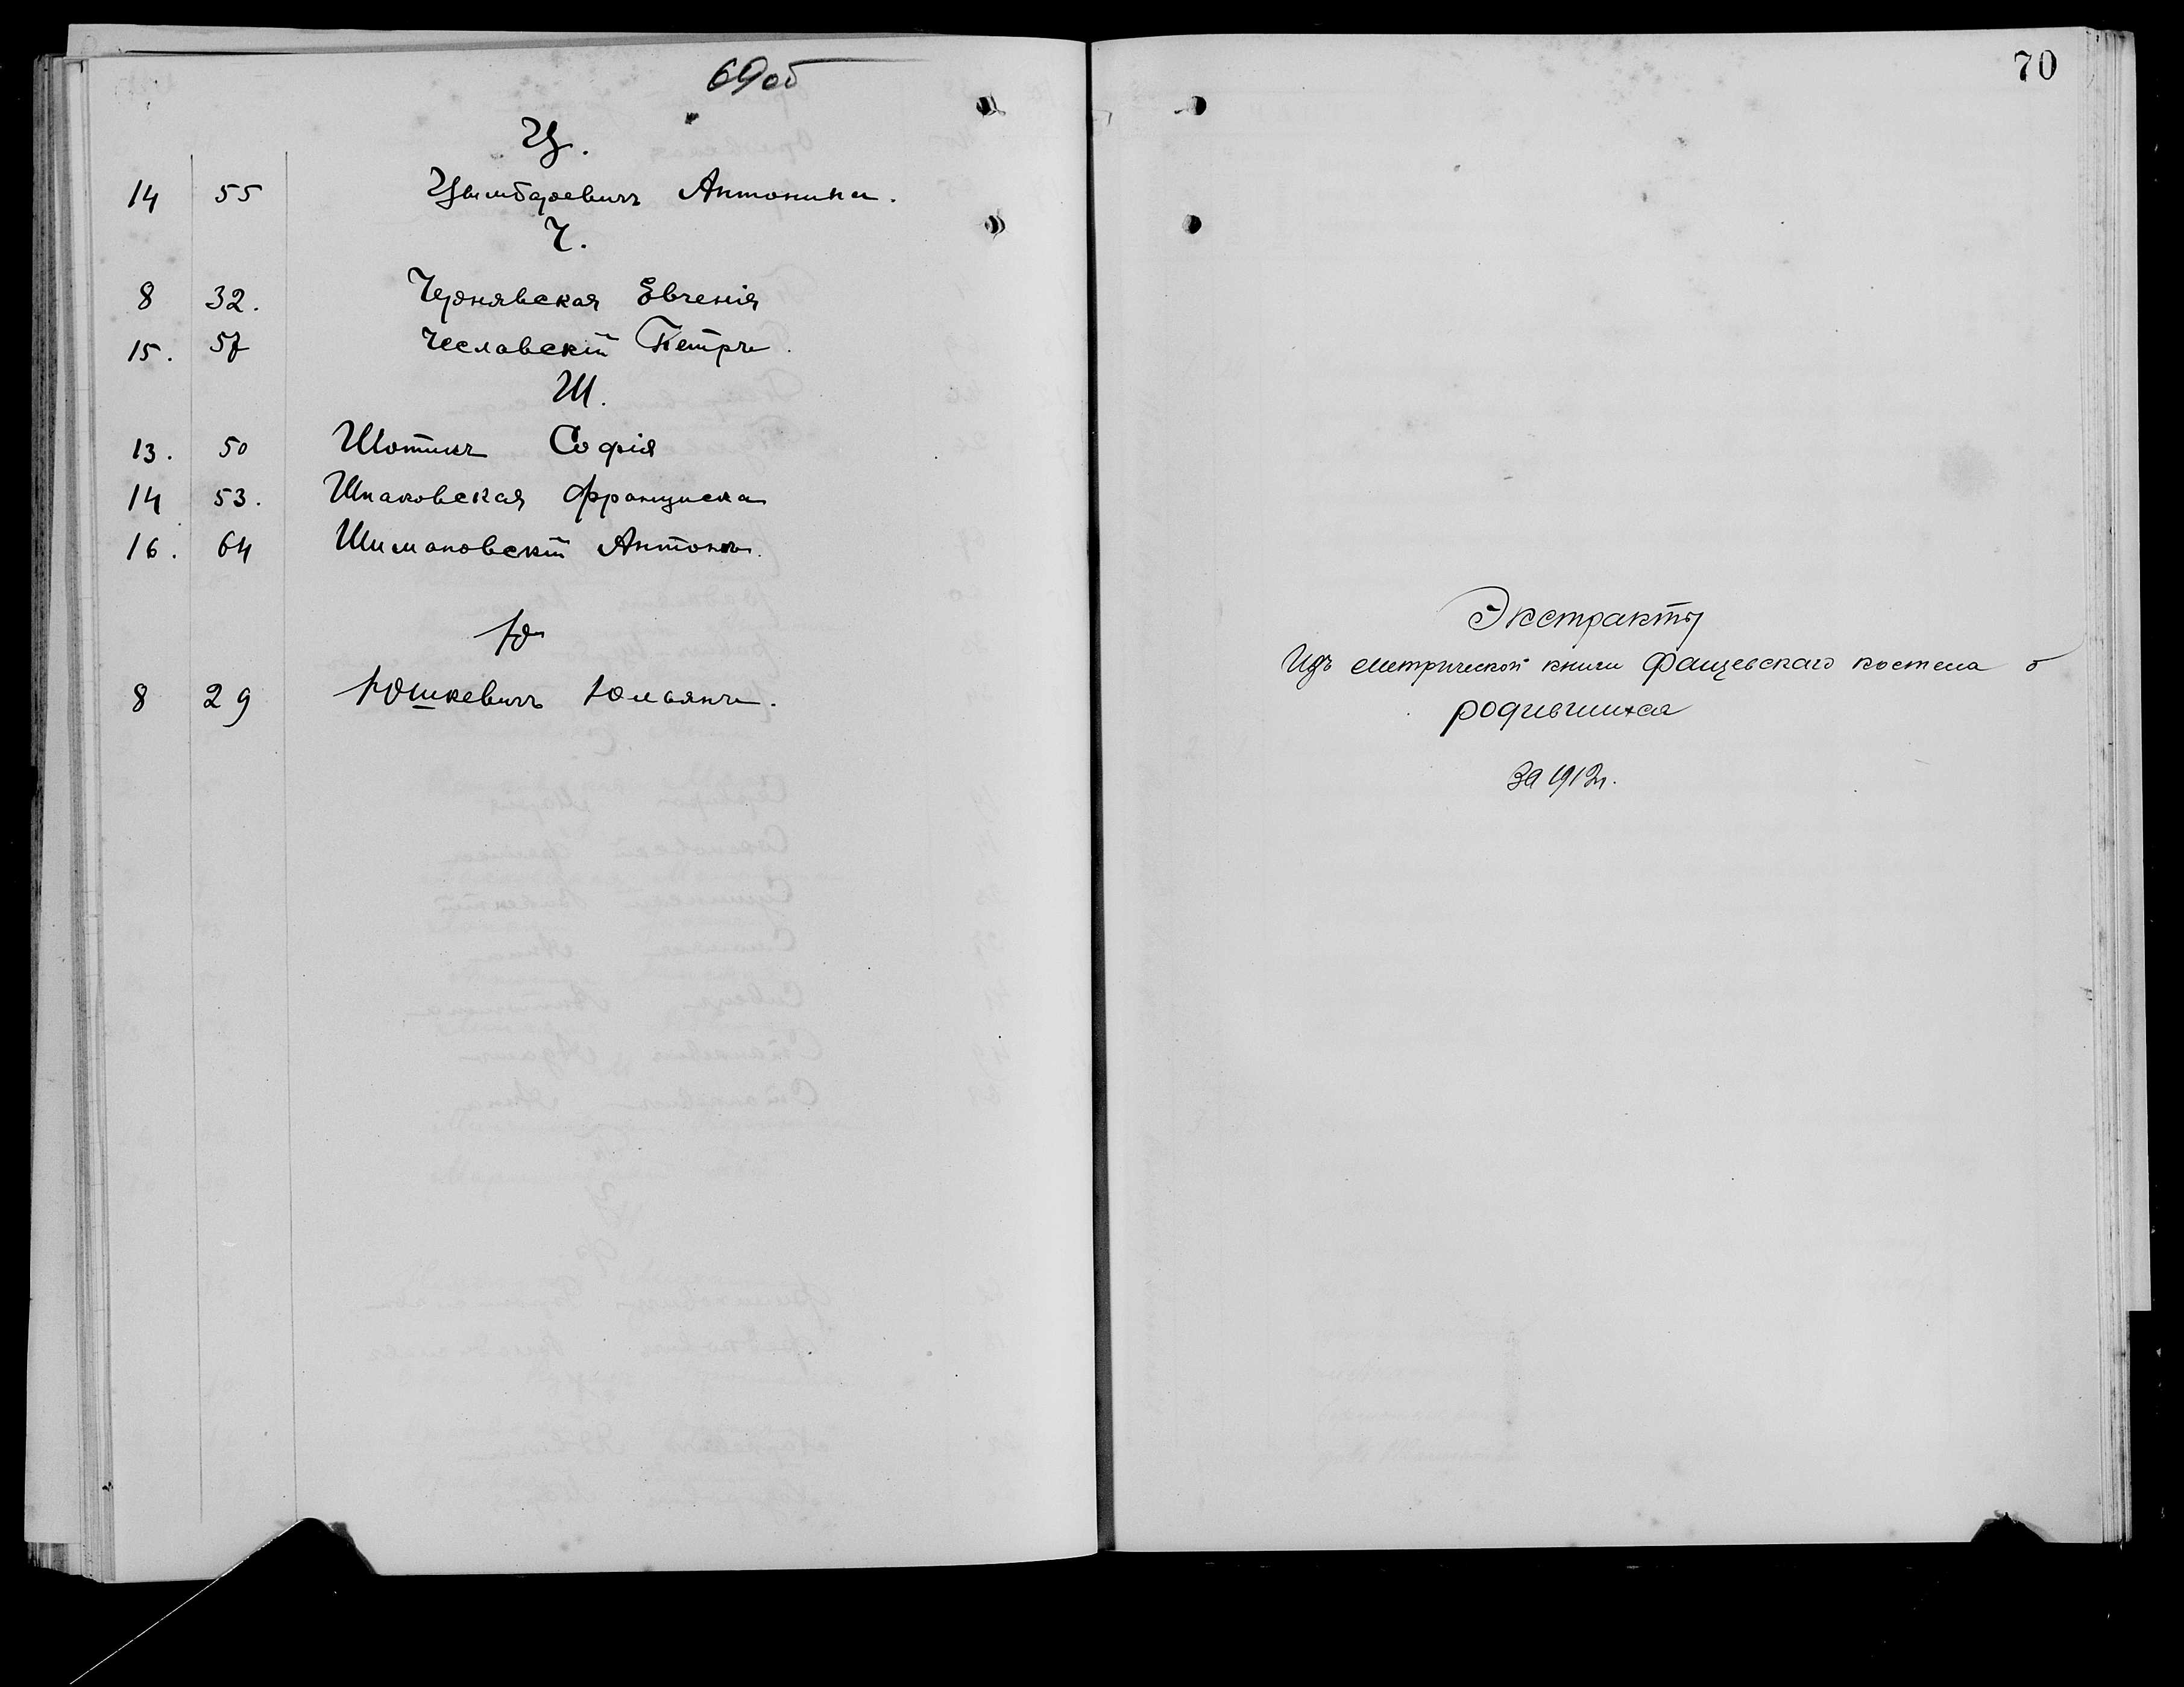 69об
Ц.
14 55 Цымбаревичъ Антонина.
Ч.
8 32. Чернявская Евгенія
15. 57 Чеславскій Петръ.
Ш.
13. 50 Шотикъ Софія
14 53. Шпаковская Франциска
16. 64 Шимановскій Антонъ.
Ю
8 29 Юшкевичъ Юльянъ.
70
Экстракты
Изъ метрической книги Фащевскаго костела о
родившихся
за 1912 г.